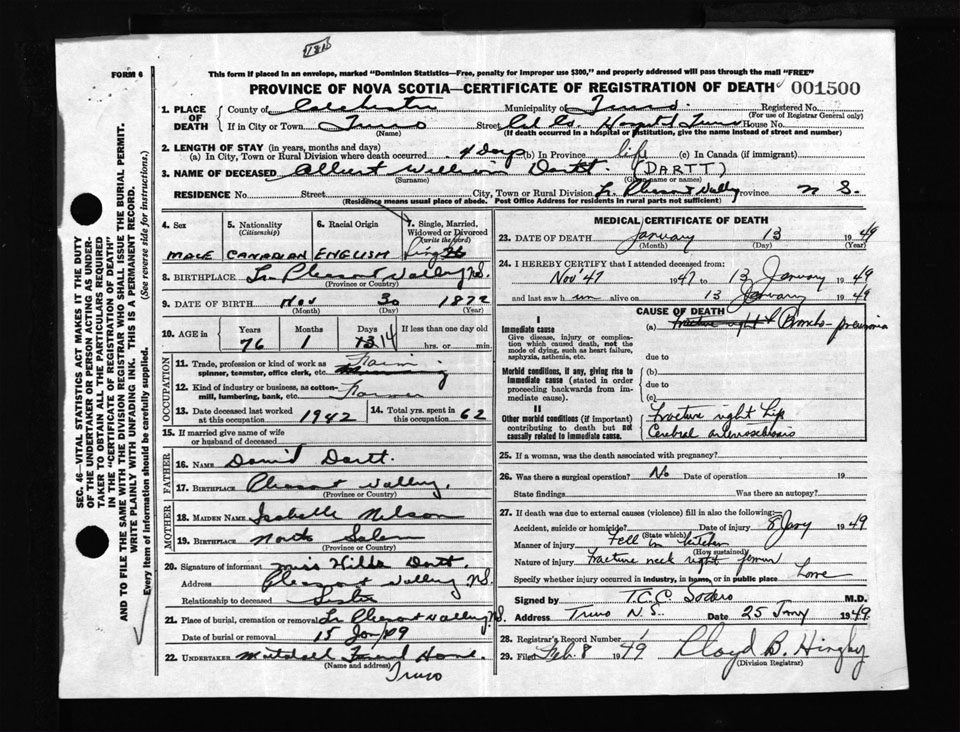 FORM 6
This form if placed in an envelope, marked "Dominion Statistics—Free, penalty for improper use $300," and properly addressed will pass through the mail "FREE"
PROVINCE OF NOVA SCOTIA—CERTIFICATE OF REGISTRATION OF DEATH 001500
1. PLACE OF DEATH
County of Colchester Municipality of Truro Registered No.
(For use of Registrar General only)
If in City or Town Truro Street Col Co. Hospital Truro House No.
(Name) (If death occurred in a hospital or institution, give the name instead of street and number)
2. LENGTH OF STAY (in years, months and days)
(a) In City, Town or Rural Division where death occurred 4 Days (b) In Province life (c) In Canada (if immigrant)
3. NAME OF DECEASED Albert William Dartt. (DARTT)
(Surname) (Given name or names)
RESIDENCE No. Street City, Town or Rural Division Lr. Pleasant Valley Province N S.
(Residence means usual place of abode. Post Office Address for residents in rural parts not sufficient)
4. Sex
MALE
5. Nationality
(Citizenship)
CANADIAN
6. Racial Origin
ENGLISH
7. Single, Married, Widowed or Divorced
(write the word)
Single
8. BIRTHPLACE Lr Pleasant Valley NS.
(Province or Country)
9. DATE OF BIRTH Nov 30 1872
(Month) (Day) (Year)
10. AGE in
Years Months Days If less than one day old
76 1 13 14 hrs. or min.
OCCUPATION
11. Trade, profession or kind of work as spinner, teamster, office clerk, etc. Farming
12. Kind of industry or business, as cotton-mill, lumbering, bank, etc. Farmer
13. Date deceased last worked at this occupation 1942
14. Total yrs. spent in this occupation 62
15. If married give name of wife or husband of deceased
FATHER
16. NAME David Dartt.
17. BIRTHPLACE Pleasant Valley.
(Province or Country)
MOTHER
18. MAIDEN NAME Isabelle Nelson
19. BIRTHPLACE North Salem
(Province or Country)
20. Signature of informant Miss Hilda Dartt.
Address Pleasant Valley NS.
Relationship to deceased Sister
21. Place of burial, cremation or removal Lr Pleasant Valley N.S.
Date of burial or removal 15 Jan/49
22. UNDERTAKER Mattatall Funeral Home.
(Name and address)
Truro
MEDICAL CERTIFICATE OF DEATH
23. DATE OF DEATH January 13 1949
(Month) (Day) (Year)
24. I HEREBY CERTIFY that I attended deceased from:
Nov '47 1947 to 13 January 1949
and last saw him alive on 13 January 1949
CAUSE OF DEATH
I
Immediate cause
Give disease, injury or complication which caused death, not the mode of dying, such as heart failure, asphyxia, asthenia, etc.
(a) Fracture right Broncho-pneumonia
due to
Morbid conditions, if any, giving rise to immediate cause (stated in order proceeding backwards from immediate cause).
(b)
due to
(c)
II
Other morbid conditions (if important) contributing to death but not causally related to immediate cause.
Fracture right hip
Cerebral arteriosclerosis
25. If a woman, was the death associated with pregnancy?
26. Was there a surgical operation? No Date of operation 19
State findings Was there an autopsy?
27. If death was due to external causes (violence) fill in also the following:
Accident, suicide or homicide? Date of injury 8 Jany 1949
(State which)
Manner of injury Fell in kitchen
(How sustained)
Nature of injury Fracture neck right femur
Specify whether injury occurred in industry, in home, or in public place Home
Signed by T.C.C. Sodero M.D.
Address Truro N.S. Date 25 Jany 1949
28. Registrar's Record Number 1
29. Filed Feb. 8 1949 Lloyd B. Hingley
(Division Registrar)
SEC. 46—VITAL STATISTICS ACT MAKES IT THE DUTY OF THE UNDERTAKER OR PERSON ACTING AS UNDERTAKER TO OBTAIN ALL THE PARTICULARS REQUIRED IN THE "CERTIFICATE OF REGISTRATION OF DEATH" AND TO FILE THE SAME WITH THE DIVISION REGISTRAR WHO SHALL ISSUE THE BURIAL PERMIT.
WRITE PLAINLY WITH UNFADING INK. THIS IS A PERMANENT RECORD.
Every item of information should be carefully supplied. (See reverse side for instructions.)